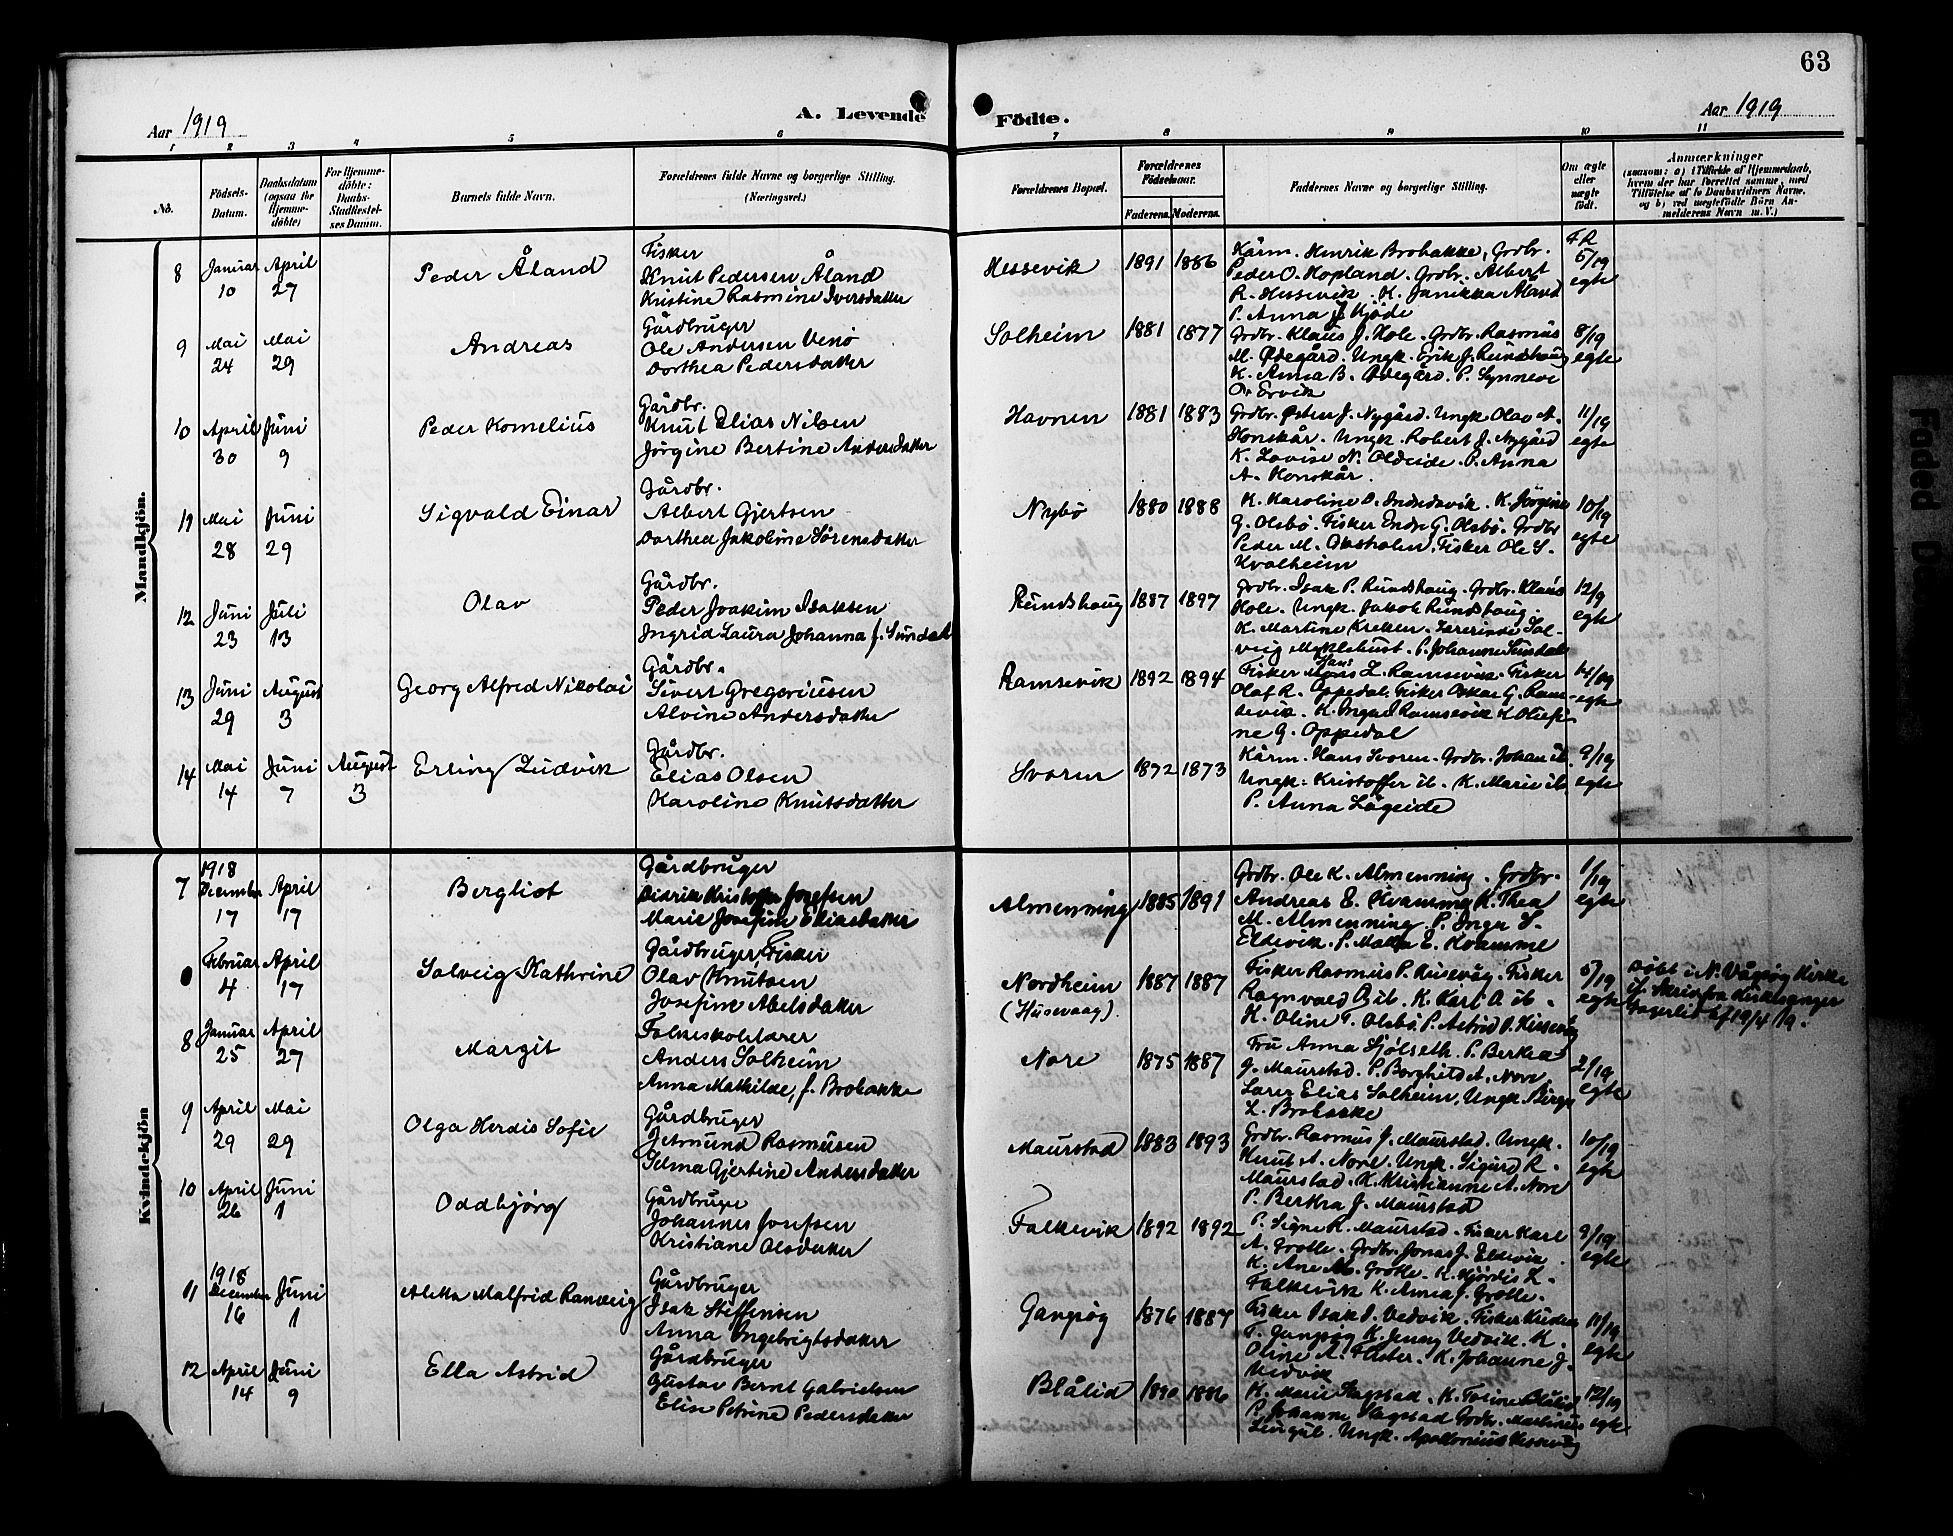 63
Aar 1919
A. Levende Födte.
Aar 1919
1 2 3 4 5 6 7 8 9 10 11
No.
Födsels-Datum.
Daabsdatum (ogsaa for Hjemme-döbte)
For Hjemme-döbte: Daabs-Stadfæstel-ses Datum.
Barnets fulde Navn.
Forældrenes fulde Navne og borgerlige Stilling. (Næringsvei.)
Forældrenes Bopæl.
Forældrenes Födselsaar.
Faderens. Moderens.
Faddernes Navne og borgerlige Stilling.
Om ægte eller uægte födt.
Anmærkninger
(saasom: a) i Tilfælde af Hjemmedaab, hvem der har forrettet samme, med Tilföielse af to Daabsvidners Navne, og b) ved uægtefödte Börn An-melderens Navn m. V.)
Mandkjön.
8 Januar 10 April 27
Peder Åland
Fisker
Knut Pedersen Åland
Kristine Rasmine Iversdatter
Hessevik 1891 1886
Kårm. Henrik Brobakke, Grdbr.
Peder O. Hopland. Grdbr. Albert
R. Hessevik. K. Janikka Åland
P. Anna J. Kjöde
F R 5/19 egte
9 Mai 24 Mai 29
Andreas
Gårdbruger
Ole Andersen Venö
Dorthea Pedersdatter
Solheim 1881 1877
Grdbr. Klaus J. Hole. Grdbr. Rasmus
M. Ødegård. Ungk. Erik J. Rundshaug
K. Anna B. Ødegård. P. Synneve
O. Ervik
8/19 egte
10 April 30 Juni 9
Peder Kornelius
Gårdbr.
Knut Elias Nilsen
Jörgine Bertine Andersdatter
Havnen 1881 1883
Grdbr. Østen J. Nygård. Ungk. Olav A.
Honskår. Ungk. Robert J. Nygård
K. Lovise N. Oldeide. P. Anna
A. Honskår.
11/19 egte
11 Mai 28 Juni 29
Sigvald Einar
Gårdbr.
Albert Gjertsen
Dorthea Jakoline Sörensdatter
Nybö 1880 1888
K. Karoline O. K. Jörgine
G. Olsbö. Fisker Endr. G. Olsbö. Grdbr
Peder M. Fisker Ole S.
Kvalheim
10/19 egte
12 Juni 23 Juli 13
Olav
Gårdbr.
Peder Joakim Isaksen
Ingrid Laura Johanna f. Sundal
Rundshaug 1887 1897
Grdbr. Isak P. Rundshaug. Grdbr. Klaus
Hole. Ungk. Jakob Rundshaug.
K. Martine Lærerinde Sol-
veig Myklebust. P. Johanne Sundal
12/9 egte
13 Juni 29 August 3
Georg Alfred Nikolai
Gårdbr.
Sivert Gregoriusen
Alvine Andersdatter
Ramsevik 1892 1894
Fisker Hans L. Ramsevik. Fisker
Olaf R. Oppedal. Fisker Oskar G. Ram-
sevik. K. Inga Ramsevik K. Olufi-
ne G. Oppedal
/19 egte
14 Mai 14 Juni 7 August 3
Erling Ludvik
Gårdbr.
Elias Olsen
Karoline Knutsdatter
Svoren 1872 1873
Kårm. Hans Svoren. Grdbr. Johan ib.
Ungk. Kristoffer ib. K. Marie ib.
P. Anna Lågeide
9/19 egte
Kvindekjön
7 1918 December 17 April 17
Bergliot
Gårdbruger
Didrik Kristoffer Josefsen
Marie Josefine Eliasdatter
Almenning 1885 1891
Grdbr. Ole K. Almenning. Grdbr.
Andreas E. Kvamme K. Thea
M. Almenning. P. Inga S.
Eldevik. P. E. Kvamme
1/19 egte
Februar 4 April 17
Solveig Kathrine
Gårdbruger, Fisker
Olav Knutsen
Josefine Abelsdatter
Nordheim (Husevaag). 1887 1887
Fisker Rasmus P. Husevåg. Fisker
Ragnvald O. ib. K. Kari O. ib.
K. Oline T. Olsbö. P. Astrid O. Husevåg
5/19 egte
Döbt i N. Vågsöy Kirke
if. Skriv fra Kirkesanger
af 19/4 19.
8 Januar 25 April 27
Margit
Folkeskolelærer
Anders Solheim
Anna Mathilde, f. Brobakke
Nore 1875 1887
Fru Anna Sjölseth. P. Berthea
G. Maurstad. P. Borghild A. Nore
Lærer Elias Solheim, Ungk. Birger
L. Brobakke
2/19 egte
9 April 29 Mai 29
Olga Herdis Sofie
Gårdbruger
Jetmund Rasmusen
Selma Gjertine Andersdatter
Maurstad 1883 1893
Grdbr. Rasmus J. Maurstad. Ungk.
Knut A. Nore. Ungk. Sigurd R.
Maurstad. K. Kristianne A. Nore
P. Bertha J. Maurstad
10/19 egte
10 April 26 Juni 1
Oddbjörg
Gårdbruger
Johannes Josefsen
Kristiane Olsdatter
Falkevik 1892 1892
P. Signe R. Maurstad. Fisker Karl
A. Grotle. Grdbr. Jonas J. Eldevik.
K. Ane M. Grotle. K. Hjördis L.
Falkevik K. Anna J. Grotle.
9/19 egte
11 1918 December 16 Juni 1
Aletta Malfrid Ranveig
Gårdbruger
Isak Steffensen
Anna Ingebrigtsdatter
Gangsöy 1876 1887
Fisker Isak P. Vedvik. Fisker
T. Gangsöy K. Jenny Vedvik. K.
Oline A. K. Johanne J.
Vedvik
11/19 egte
12 April 14 Juni 9
Ella Astrid
Gårdbruger
Gustav Bernt Gabrielsen
Elise Petrine Pedersdatter
Blålid 1890 1886
K. Marie Hagstad. K. Blålid
P. Johanne Hagstad Grdbr. Martinus
Ungk. Apollonius
12/19 egte